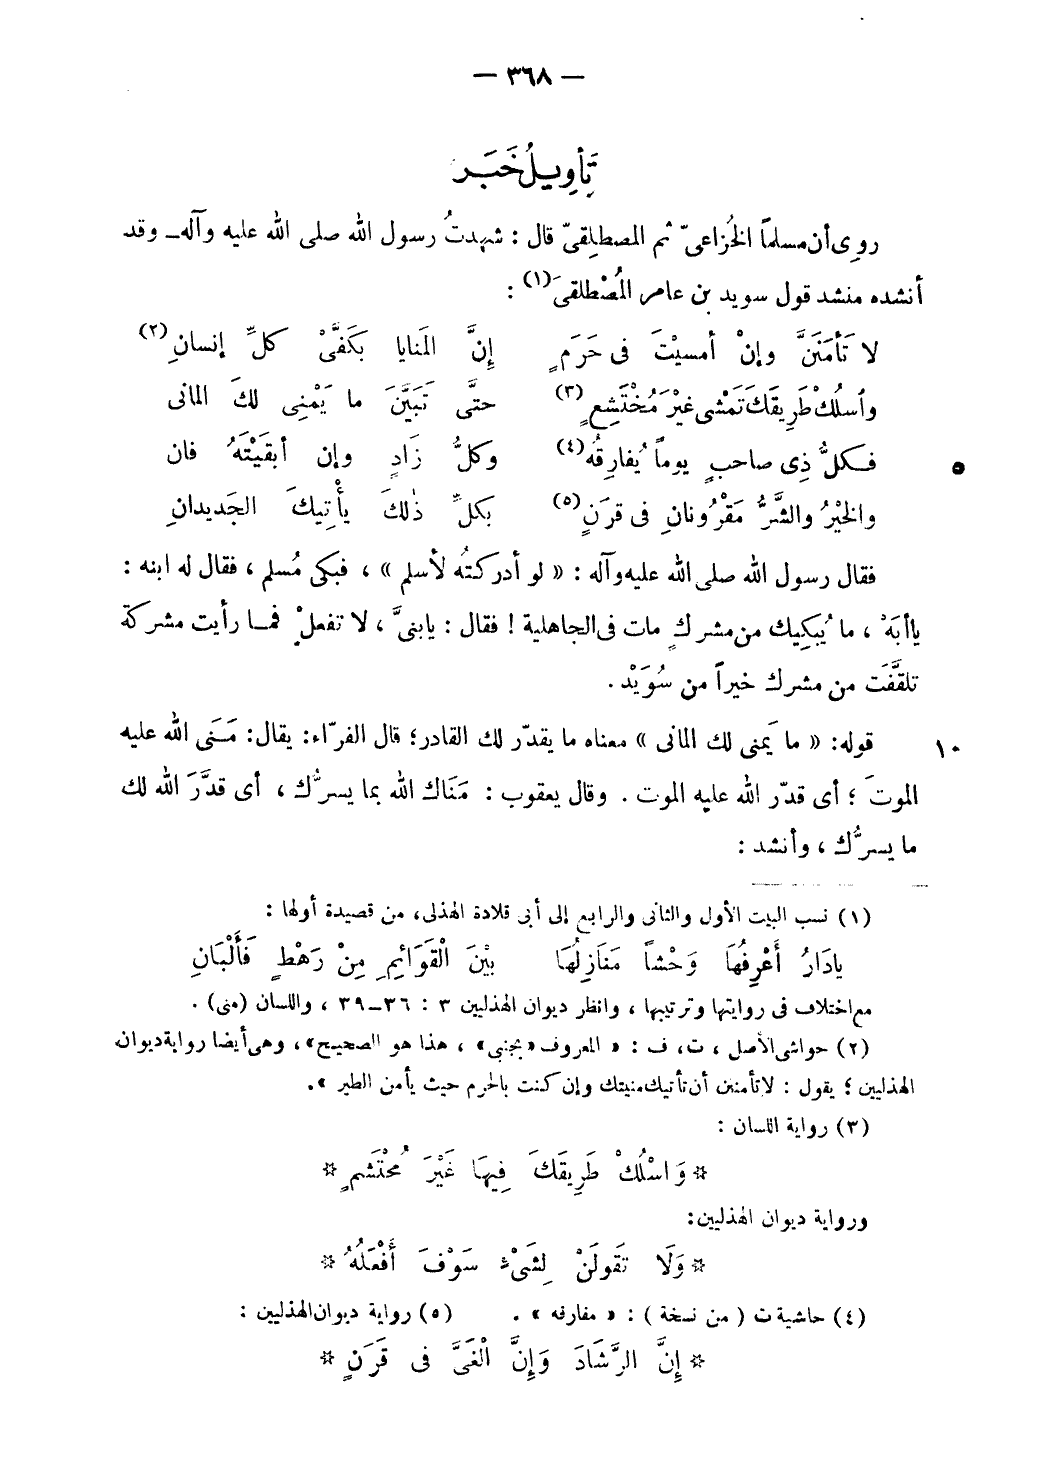 — ٣٦٨ —
تَأويلُ خَبَر
روِى أن مسلماً الخُزاعىّ ثم المصطلِقىّ قال : شهدتُ رسول الله صلى الله عليه وآله – وقد
أنشده منشد قول سويد بن عامر المُصْطلقىَ(١) :
لا تَأمَنَنَّ وإنْ أمسيْتَ فى حَرَمٍ إِنَّ المَنايا بكَفَّىْ كلِّ إنسانِ(٢)
وٱسلُكْ طَرِيقَكَ تَمْشى غيْرَ مُخْتَشِعٍ(٣) حتَّى تَبَيَّنَ ما يَمْنِى لكَ المانى
فكلُّ ذِى صاحبٍ يوماً يُفارِقُه(٤) وكلُّ زَادٍ وإن أبقَيْتَهُ فان
٥
والخيْرُ والشَّرُّ مَقْرُونانِ فى قرَنٍ(٥) بكلِّ ذٰلكَ يأْتِيكَ الجَديدانِ
فقال رسول الله صلى الله عليه وآله : « لو أدركتُه لأسلم » ، فبكى مُسلم ، فقال له ابنه :
ياأبَهْ ، ما يُبكِيك من مشركٍ مات فى الجاهلية ! فقال : يابنىَّ ، لا تفعلْ فما رأيت مشركة
تلقَّفَت من مشرك خيراً من سُوَيْد .
قوله: « ما يَمنى لك المانى » معناه ما يقدّر لك القادر؛ قال الفرّاء: يقال: مَنَى الله عليه
١٠
الموتَ ؛ أى قدّر الله عليه الموت . وقال يعقوب : مَنَاك الله بما يسرُّك ، أى قدَّرَ الله لك
ما يسرُّك ، وأنشد :
(١) نسب البيت الأول والثانى والرابع إلى أبى قلادة الهذلى، من قصيدة أولها :
يادَارُ أَعْرِفُهَا وَحْشاً مَنَازِلُهَا بيْنَ الْقَوَائِمِ مِنْ رَهْطٍ فَأَلْبَانِ
مع اختلاف فى روايتها وترتيبها ، وانظر ديوان الهذليين ٣ : ٣٦–٣٩ ، واللسان (منى) .
(٢) حواشى الأصل ، ت، ف : « المعروف «بجنبى» ، هذا هو الصحيح»، وهى أيضا رواية ديوان
الهذليين ؛ يقول : لا تأمنن أن تأتيك منيتك وإن كنت بالحرم حيث يأمن الطير ».
(٣) رواية اللسان :
* وَاسْلُكْ طَرِيقَكَ فِيهَا غَيْرَ مُحْتَشمٍ *
ورواية ديوان الهذليين:
* وَلَا تقَولَنْ لِشَىْءٍ سَوْفَ أَفْعَلُهُ *
(٤) حاشية ت ( من نسخة ) : « مفارقه » . (٥) رواية ديوان الهذليين :
* إِنَّ الرَّشَادَ وَإِنَّ الْغَىَّ فى قَرَنٍ *